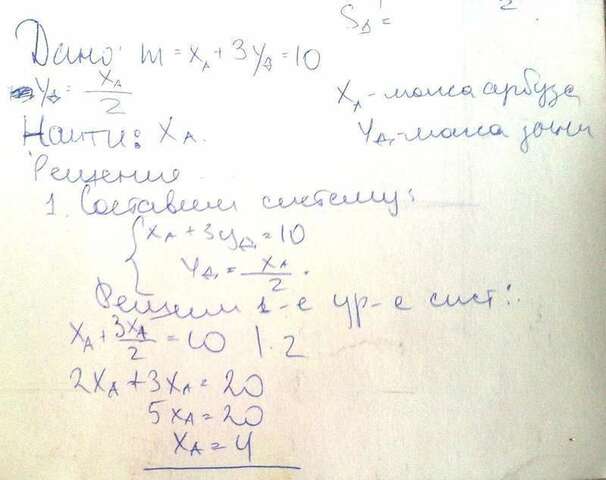 S_Δ =
2
Дано: m = x_A + 3y_Δ = 10
y_Δ = x_A/2
x_A - масса арбуза
Найти: x_A.
y_Δ - масса дыни
Решение
1. Составим систему:
{ x_A + 3y_Δ = 10
y_Δ = x_A/2.
Решим 1-е ур-е сист.:
x_A + 3x_A/2 = 10 | · 2
2x_A + 3x_A = 20
5x_A = 20
x_A = 4